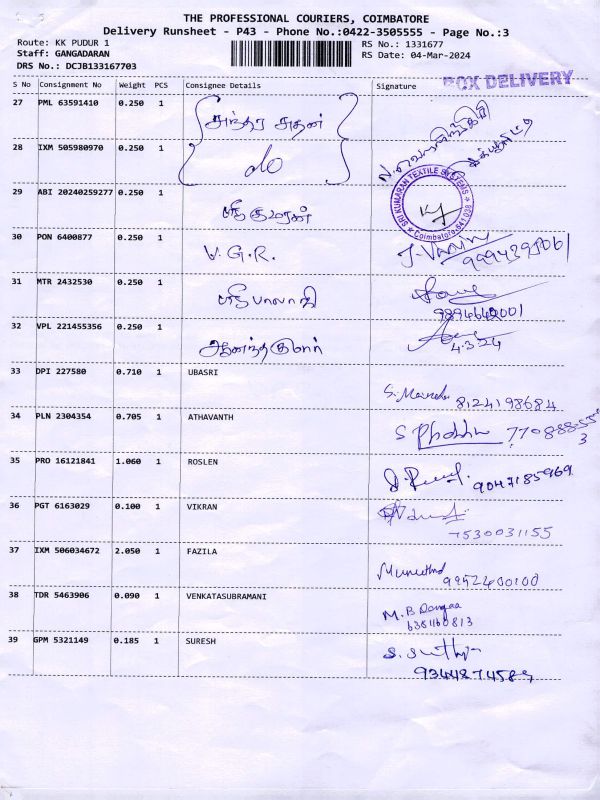 THE PROFESSIONAL COURIERS, COIMBATORE
Delivery Runsheet - P43 - Phone No.:0422-3505555 - Page No.:3
Route: KK PUDUR 1 RS No.: 1331677
Staff: GANGADARAN RS Date: 04-Mar-2024
DRS No.: DCJB133167703
BOX DELIVERY
S No Consignment No Weight PCS Consignee Details Signature
27 PML 63591410 0.250 1
28 IXM 505980970 0.250 1 do
29 ABI 20240259277 0.250 1 ஸ்ரீ குமரன் SRI KUMARAN TEXTILE SYSTEMS Coimbatore-641 038
30 PON 6400877 0.250 1 V.G.R.
31 MTR 2432530 0.250 1 ஸ்ரீ பாலாஜி 9894642001
32 VPL 221455356 0.250 1 ஆனந்தகுமார் 4.3.24
33 DPI 227580 0.710 1 UBASRI 8124198684
34 PLN 2304354 0.705 1 ATHAVANTH
35 PRO 16121841 1.060 1 ROSLEN 9047185969
36 PGT 6163029 0.100 1 VIKRAN 7530031155
37 IXM 506034672 2.050 1 FAZILA 9952400100
38 TDR 5463906 0.090 1 VENKATASUBRAMANI M.B 6381160813
39 GPM 5321149 0.185 1 SURESH 9344874589